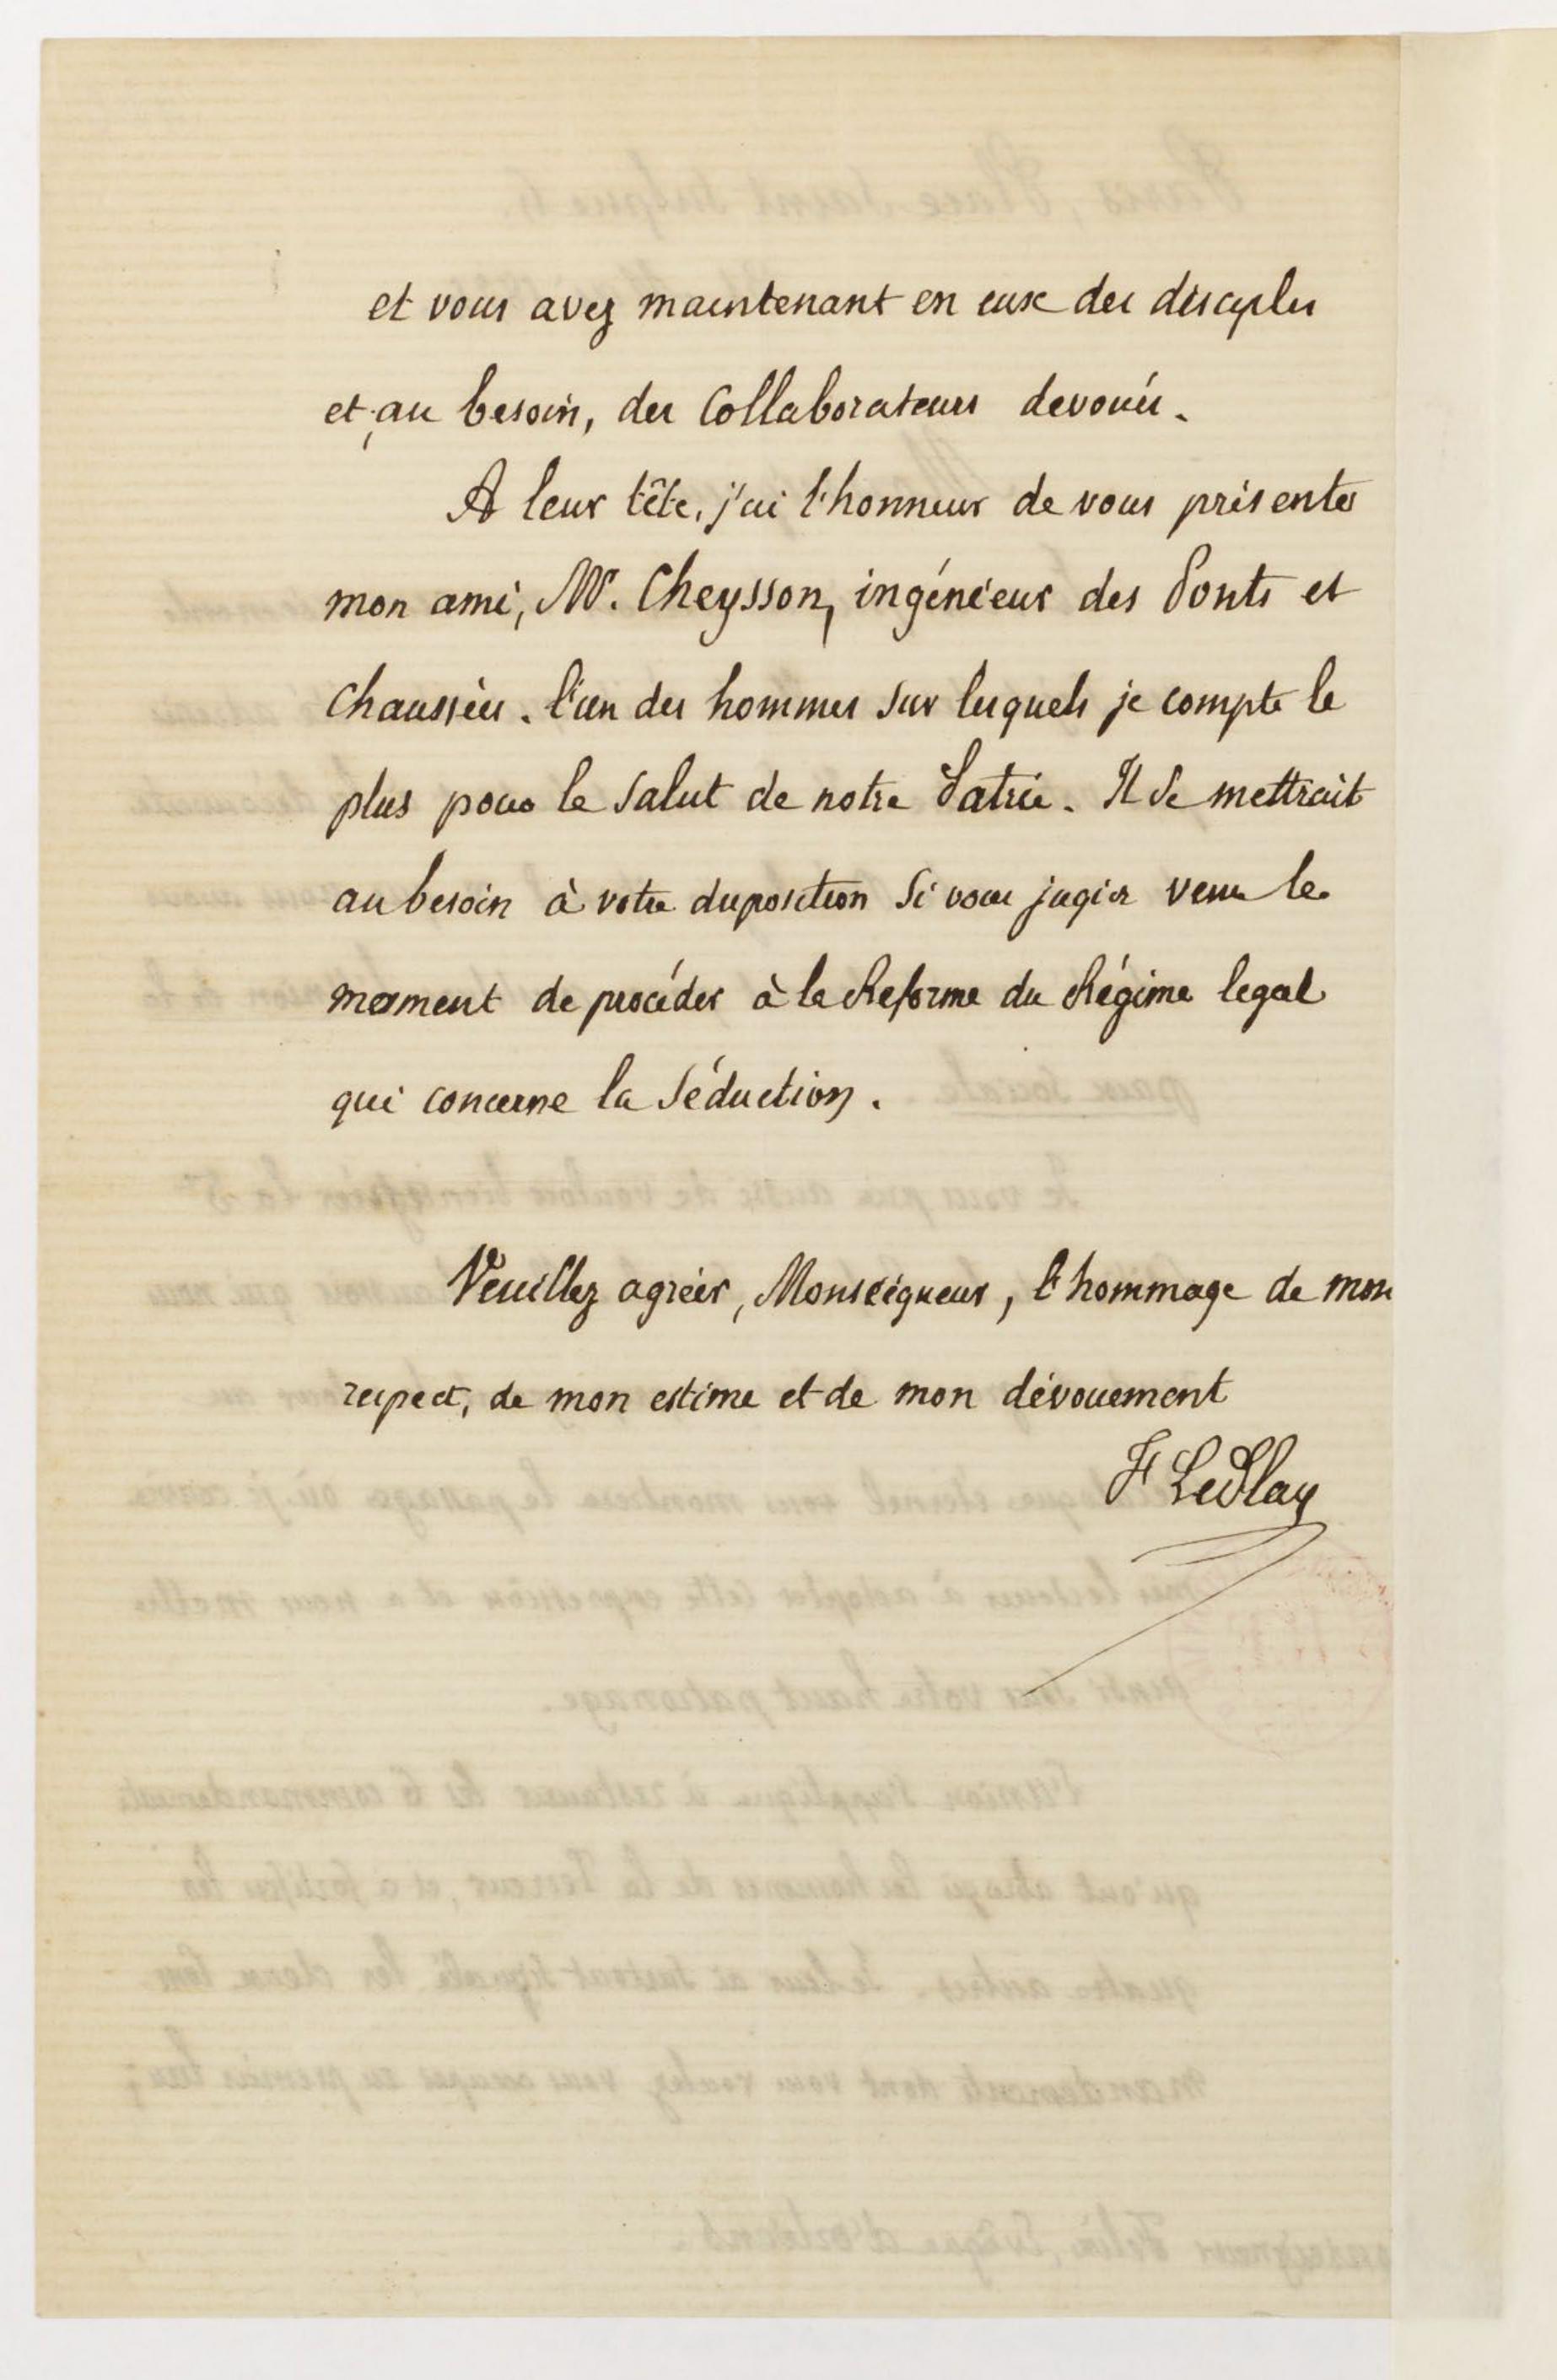 et vous avez maintenant en eux des disciples
et, au besoin, des Collaborateurs devoués.
A leur tête, j'ai l'honneur de vous présenter
mon ami, Mr. Cheysson, ingénieur des Ponts et
Chaussées. l'un des hommes sur lesquels je compte le
plus pour le Salut de notre Patrie. Il se mettrait
au besoin à votre disposition si vous jugiez venu le
moment de procéder à la Reforme du Régime legal
qui concerne la Séduction.
Veuillez agréer, Monseigneur, l'hommage de mon
respect, de mon estime et de mon dévouement
F LePlay